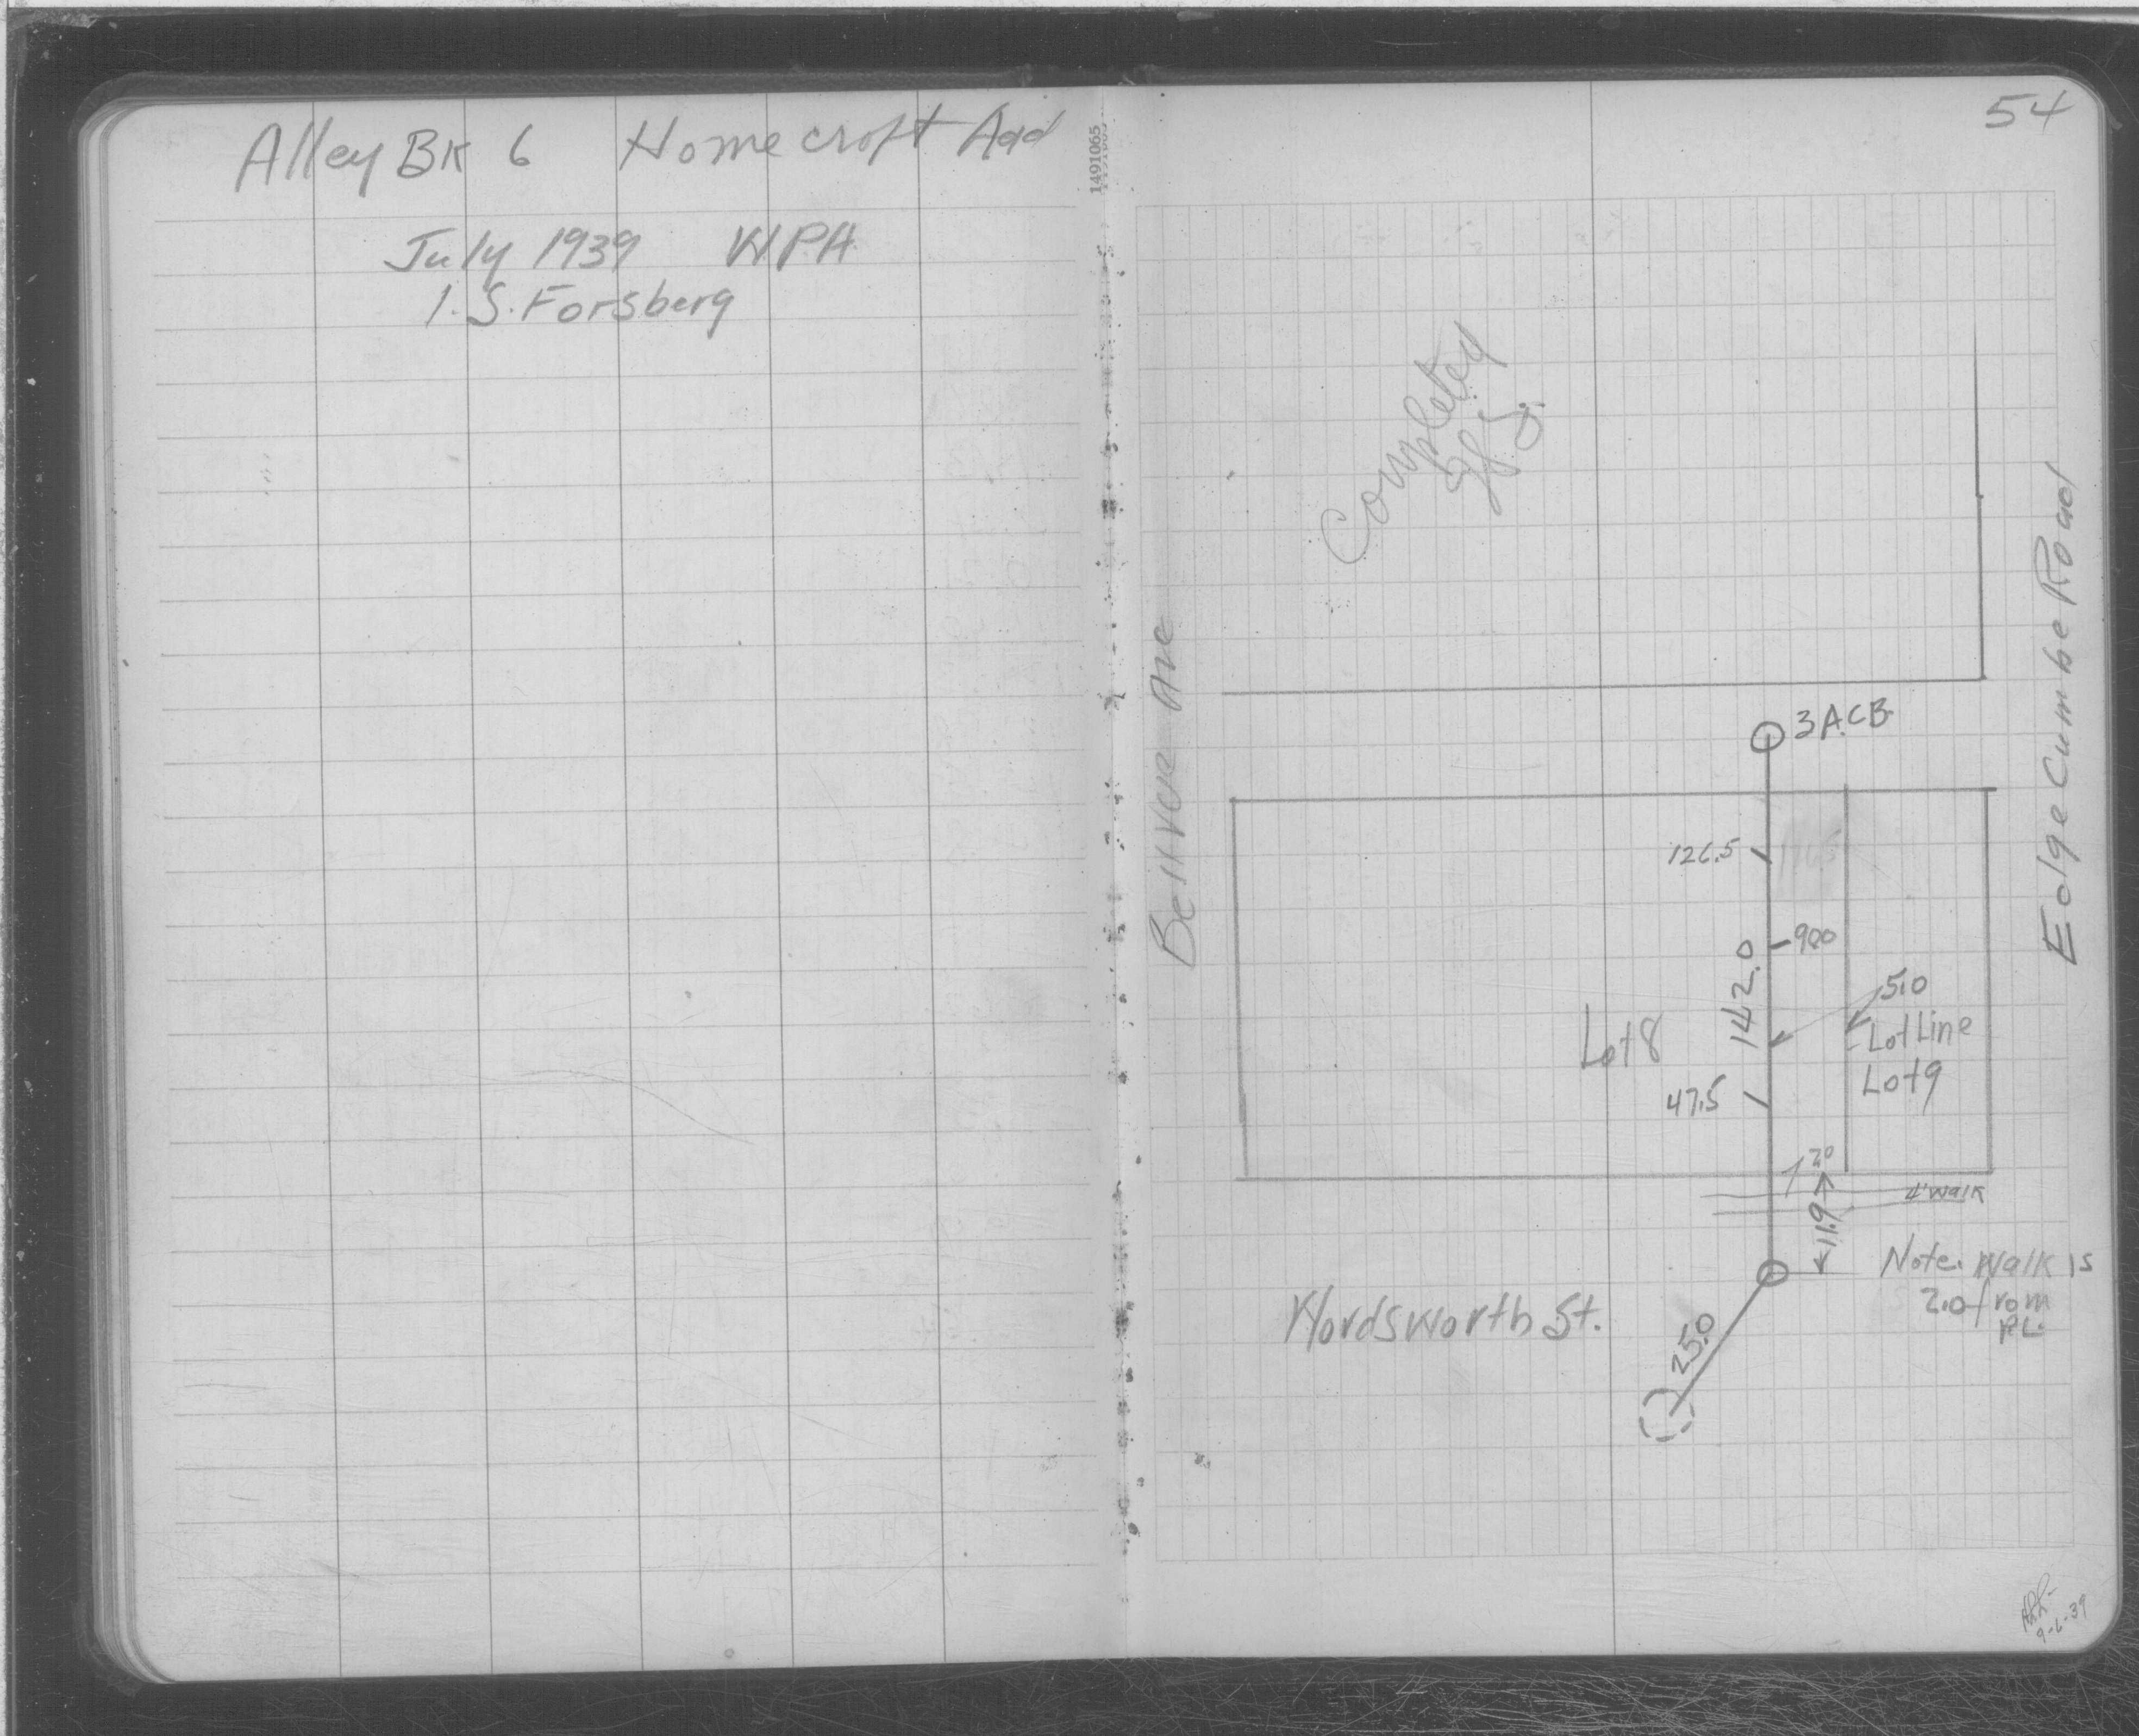 Alley BK 6 Homecroft Add
July 1939 WPA
I.S. Forsberg
1491065
54
Completed
Bellvue Ave
Edge Cumbe Road
3 A.C.B.
126.5
90.0
142.0
5.0
Lot Line
Lot 9
Lot 8
47.5
2.0
4' Walk
11.9
Note. Walk is
2.0 from
P.L.
Wordsworth St.
25.0
9-6-39